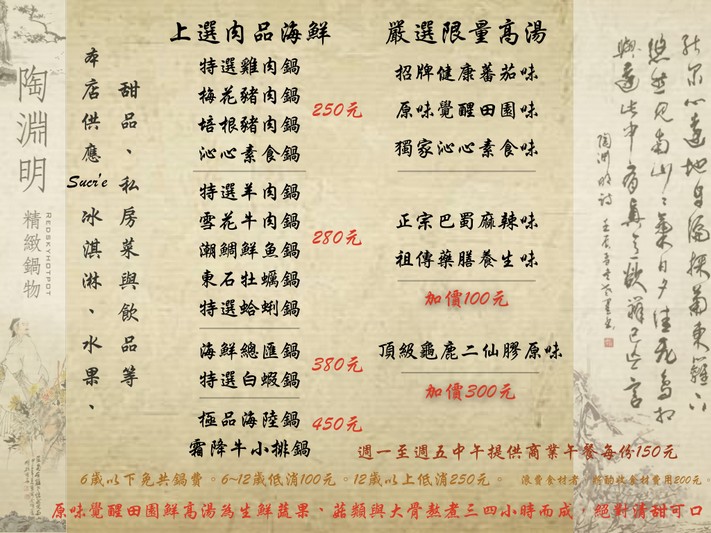 陶淵明
REDSKYHOTPOT
精緻鍋物
本店供應
Sucr'e
冰淇淋、水果、
甜品、私房菜與飲品等
上選肉品海鮮
特選雞肉鍋
梅花豬肉鍋
培根豬肉鍋
沁心素食鍋
250元
特選羊肉鍋
雪花牛肉鍋
潮鯛鮮魚鍋
東石牡蠣鍋
特選蛤蜊鍋
280元
海鮮總匯鍋
特選白蝦鍋
380元
極品海陸鍋
霜降牛小排鍋
450元
嚴選限量高湯
招牌健康蕃茄味
原味覺醒田園味
獨家沁心素食味
正宗巴蜀麻辣味
祖傳藥膳養生味
加價100元
頂級龜鹿二仙膠原味
加價300元
週一至週五中午提供商業午餐每份150元
6歲以下免共鍋費。6~12歲低消100元。12歲以上低消250元。
浪費食材者，將酌收食材費用200元。
原味覺醒田園鮮高湯為生鮮蔬果、菇類與大骨熬煮三四小時而成，絕對清甜可口